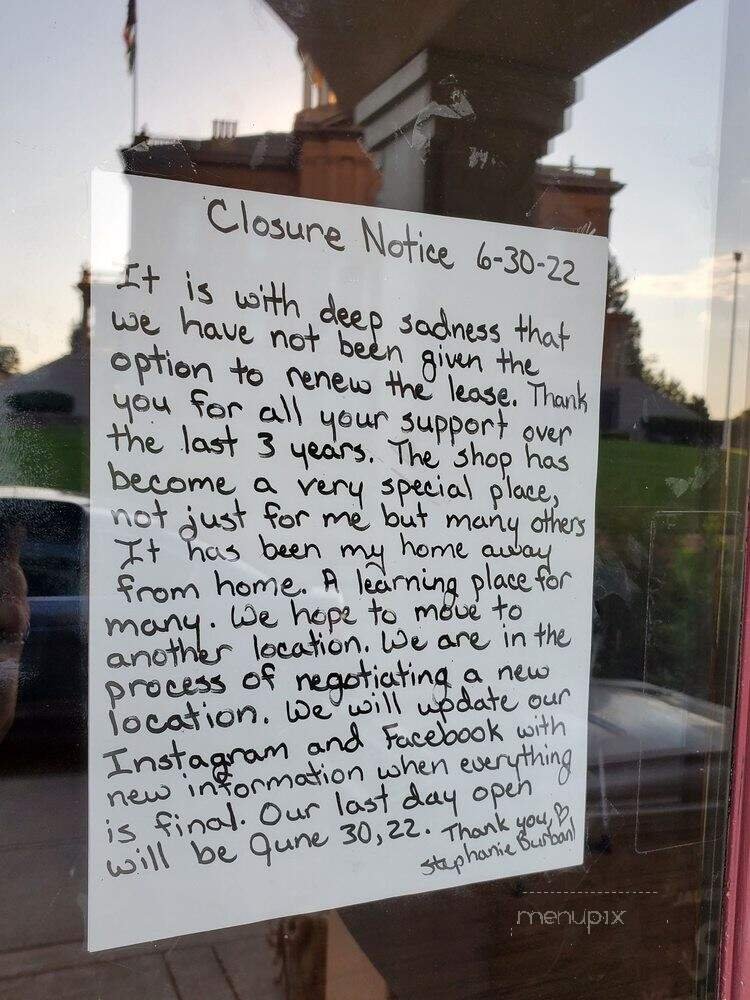 Closure Notice 6-30-22
It is with deep sadness that
we have not been given the
option to renew the lease. Thank
you for all your support over
the last 3 years. The shop has
become a very special place,
not just for me but many others
It has been my home away
from home. A learning place for
many. We hope to move to
another location. We are in the
process of negotiating a new
location. We will update our
Instagram and Facebook with
new information when everything
is final. Our last day open
will be June 30, 22. Thank you, ♡
Stephanie Burbank
menupix